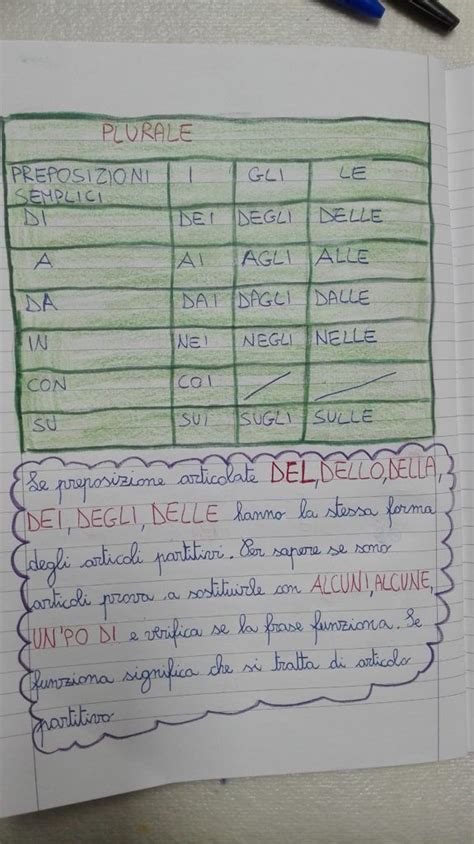 PLURALE
PREPOSIZIONI SEMPLICI I GLI LE
DI DEI DEGLI DELLE
A AI AGLI ALLE
DA DAI DAGLI DALLE
IN NEI NEGLI NELLE
CON COI
SU SUI SUGLI SULLE
Le preposizione articolate DEL, DELLO, DELLA,
DEI, DEGLI, DELLE hanno la stessa forma
degli articoli partitivi. Per sapere se sono
articoli prova a sostituirle con ALCUNI, ALCUNE,
UN'PO DI e verifica se la frase funziona. Se
funziona significa che si tratta di articolo
partitivo